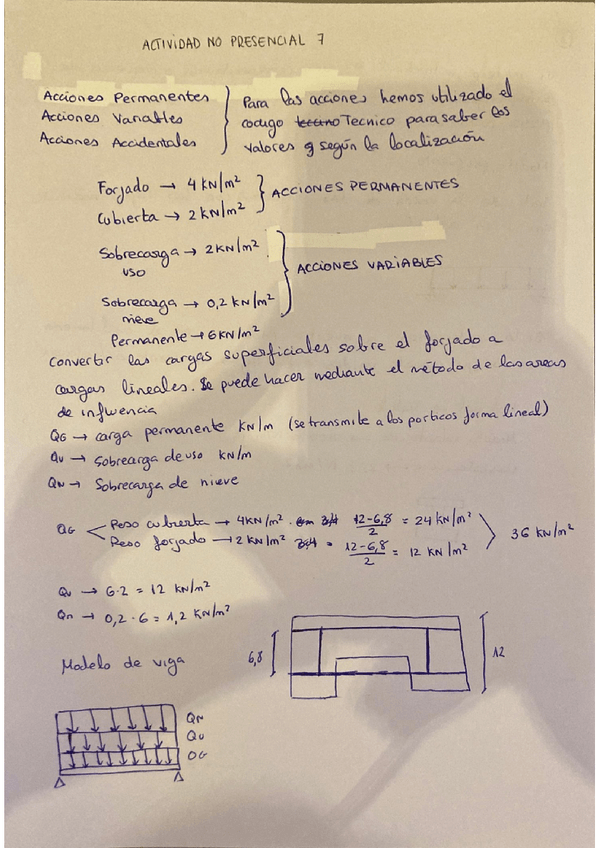 ACTIVIDAD NO PRESENCIAL 7
Acciones Permanentes
Acciones Variables
Acciones Accidentales
Para las acciones hemos utilizado el
codigo Tecnico para saber los
valores según la localización
Forjado → 4 KN/m²
Cubierta → 2 KN/m²
ACCIONES PERMANENTES
Sobrecarga → 2 KN/m²
uso
Sobrecarga → 0,2 KN/m²
nieve
ACCIONES VARIABLES
Permanente → 6 KN/m²
Convertir las cargas superficiales sobre el forjado a
cargas lineales. Se puede hacer mediante el método de las areas
de influencia
QG → carga permanente KN/m (se transmite a los porticos forma lineal)
Qu → Sobrecarga de uso KN/m
QN → Sobrecarga de nieve
QG
Peso cubierta → 4KN/m² · 12-6,8/2 = 24 KN/m²
Peso forjado → 2 KN/m² = 12-6,8/2 = 12 KN/m²
36 KN/m²
Qu → 6·2 = 12 KN/m²
Qn → 0,2 · 6 = 1,2 KN/m²
Modelo de viga
6,8
12
QN
QU
QG